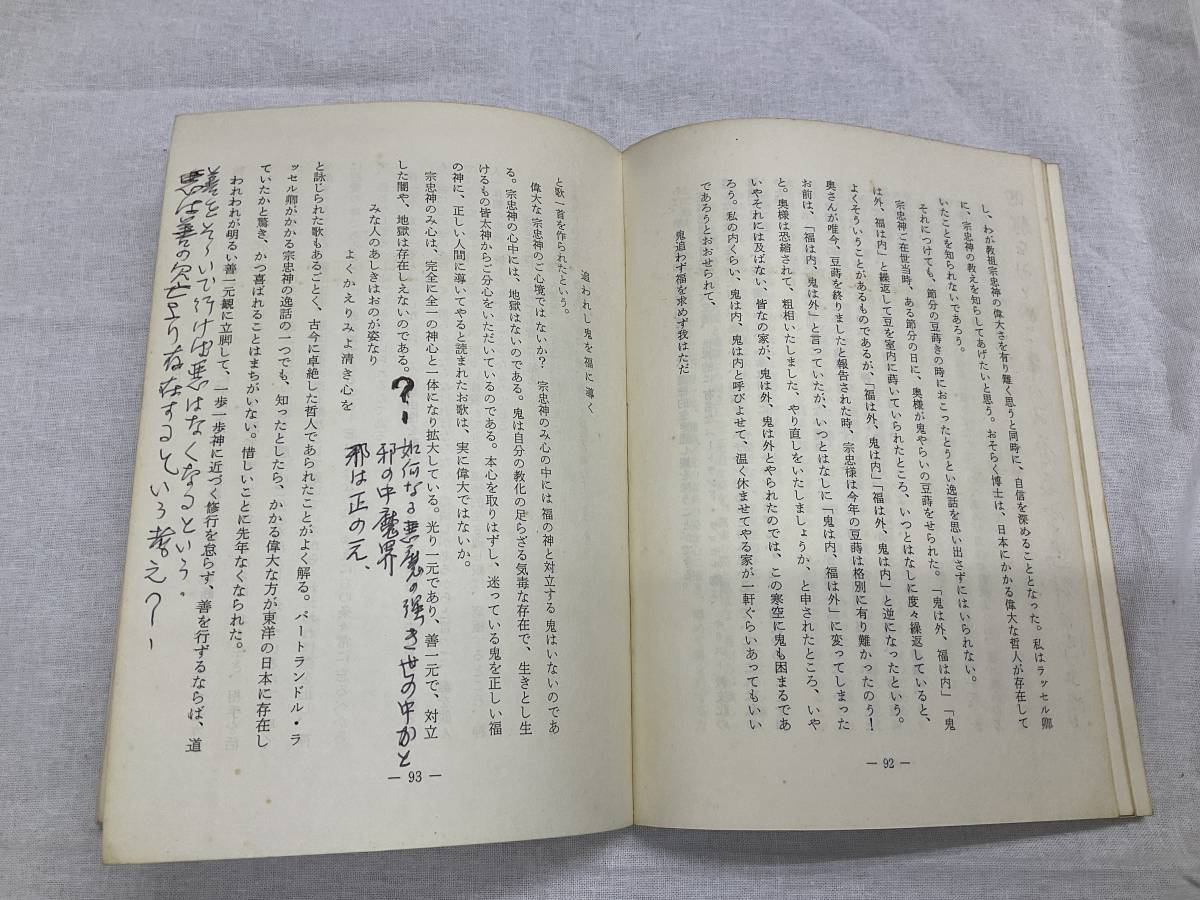 し、わが教祖宗忠神の偉大さを有り難く思うと同時に、自信を深めることとなった。私はラッセル卿
に、宗忠神の教えを知らしてあげたいと思う。おそらく博士は、日本にかかる偉大な哲人が存在して
いたことを知られないであろう。
それにつけても、節分の豆蒔きの時におこったとうとい逸話を思い出さずにはいられない。
宗忠神ご在世当時、ある節分の日に、奥様が鬼やらいの豆蒔をせられた。「鬼は外、福は内」「鬼
は外、福は内」と繰返して豆を室内に蒔いていられたところ、いつとはなしに度々繰返していると、
よくそういうことがあるものであるが、「福は外、鬼は内」「福は外、鬼は内」と逆になったという。
奥さんが唯今、豆蒔を終りましたと報告された時、宗忠様は今年の豆蒔は格別に有り難かったのう！
お前は、「福は内、鬼は外」と言っていたが、いつとはなしに「鬼は内、福は外」に変ってしまった
と。奥様は恐縮されて、粗相いたしました、やり直しをいたしましょうか、と申されたところ、いや
いやそれには及ばない、皆なの家が、鬼は外、鬼は外とやられたのでは、この寒空に鬼も困まるであ
ろう。私の内くらい、鬼は内、鬼は内と呼びよせて、温く休ませてやる家が一軒ぐらいあってもいい
であろうとおおせられて、
鬼追わず福を求めず我はただ
― 92 ―
追われし鬼を福に導く
と歌一首を作られたという。
偉大な宗忠神のご心境ではないか？　宗忠神のみ心の中には福の神と対立する鬼はいないのであ
る。宗忠神の心中には、地獄はないのである。鬼は自分の教化の足らざる気毒な存在で、生きとし生
けるもの皆太神からご分心をいただいているのである。本心を取りはずし、迷っている鬼を正しい福
の神に、正しい人間に導いてやると読まれたお歌は、実に偉大ではないか。
宗忠神のみ心は、完全に全一の神心と一体になり拡大している。光り一元であり、善一元で、対立
した闇や、地獄は存在しえないのである。
？―如何なる悪魔の強き世の中かと
邪の中魔界
邪は正の元、
みな人のあしきはおのが姿なり
よくかえりみよ清き心を
と詠じられた歌もあるごとく、古今に卓絶した哲人であられたことがよく解る。バートランドル・ラ
ッセル卿がかかる宗忠神の逸話の一つでも、知ったとしたら、かかる偉大な方が東洋の日本に存在し
ていたかと驚き、かつ喜ばれることはまちがいない。惜しいことに先年なくなられた。
われわれが明るい善一元観に立脚して、一歩一歩神に近づく修行を怠らず、善を行ずるならば、道
善をそういで行けば悪はなくなるという．
悪は善の欠亡より存在するという考え？―
― 93 ―